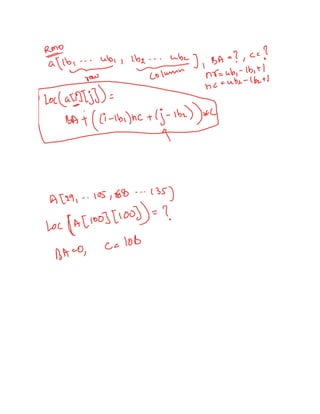 RMO
a[lb₁ ... ub₁, lb₂ ... ub₂], BA=?, C=?
row column
nr=ub₁-lb₁+1
nc=ub₂-lb₂+1
Loc(a[i][j])=
BA+((i-lb₁)nc+(j-lb₂))*C
A[29, .. 105, 68 ... 135]
Loc[A[100][100])=?
BA=0, C=10B